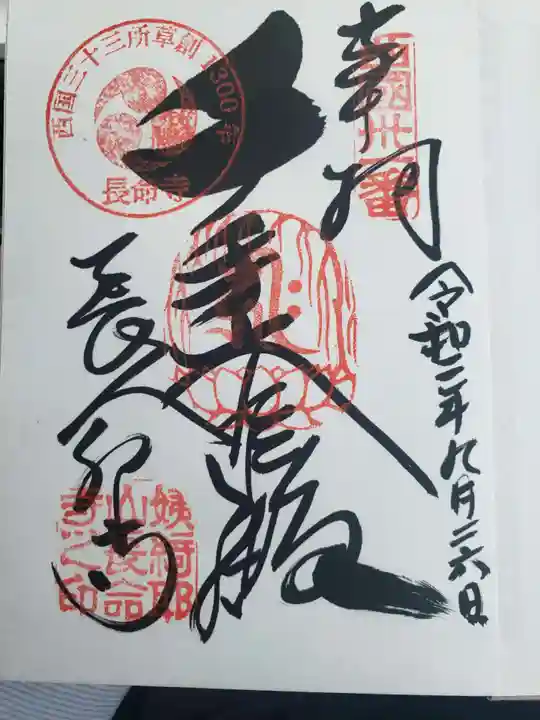 西國卅一番
奉拝
令和二年九月二六日
大悲殿
西国三十三所草創1300年
長命寺
長命寺
姨綺耶
山長命
寺之印